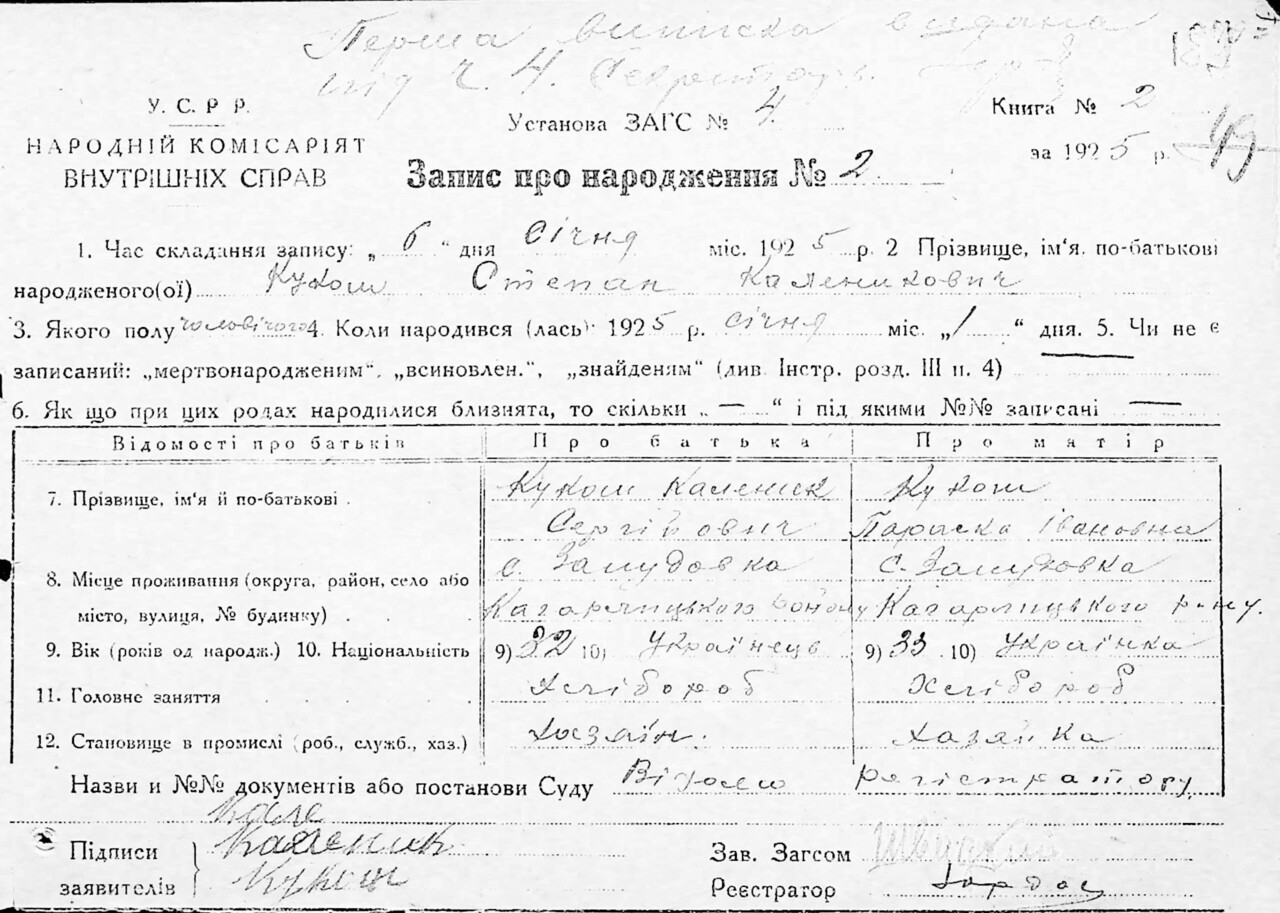 Перша виписка видана
під ч. 4. Секретар
У. С. Р Р.
НАРОДНІЙ КОМІСАРІЯТ
ВНУТРІШНІХ СПРАВ
Установа ЗАГС № 4
Книга № 2
за 1925 р.
49
Запис про народження № 2
1. Час складання запису: „ 6 " дня січня міс. 1925 р. 2 Прізвище, ім'я. по-батькові
народженого(ої) Кукош Степан Каленикович
3. Якого полу чоловічого 4. Коли народився (лась) 1925 р. січня міс. „1 " дня. 5. Чи не є
записаний: „мертвонародженим", „всиновлен.", „знайденям" (див. Інстр. розд. III п. 4)
6. Як що при цих родах народилися близнята, то скільки „ — " і під якими №№ записані —
Відомості про батьків Про батька Про матір
7. Прізвище, ім'я й по-батькові . Кукош Каленик Кукош
Сергійович Параска Івановна
8. Місце проживання (округа, район, село або с. Зашудовка с. Зашудовка
місто, вулиця, № будинку) . . Кагарлицького Кагарлицького
9. Вік (років од народж.) 10. Національність 9) 32 10) Українець 9) 33 .10) Українка
11. Головне заняття . . . . Хлібороб Хлібороб
12. Становище в промислі (роб., служб., хаз.) Хазяїн. Хазяйка
Назви и №№ документів або постанови Суду Відомо регістратору
Кале
Підписи Каленик
заявителів Кукош
Зав. Загсом
Реєстратор